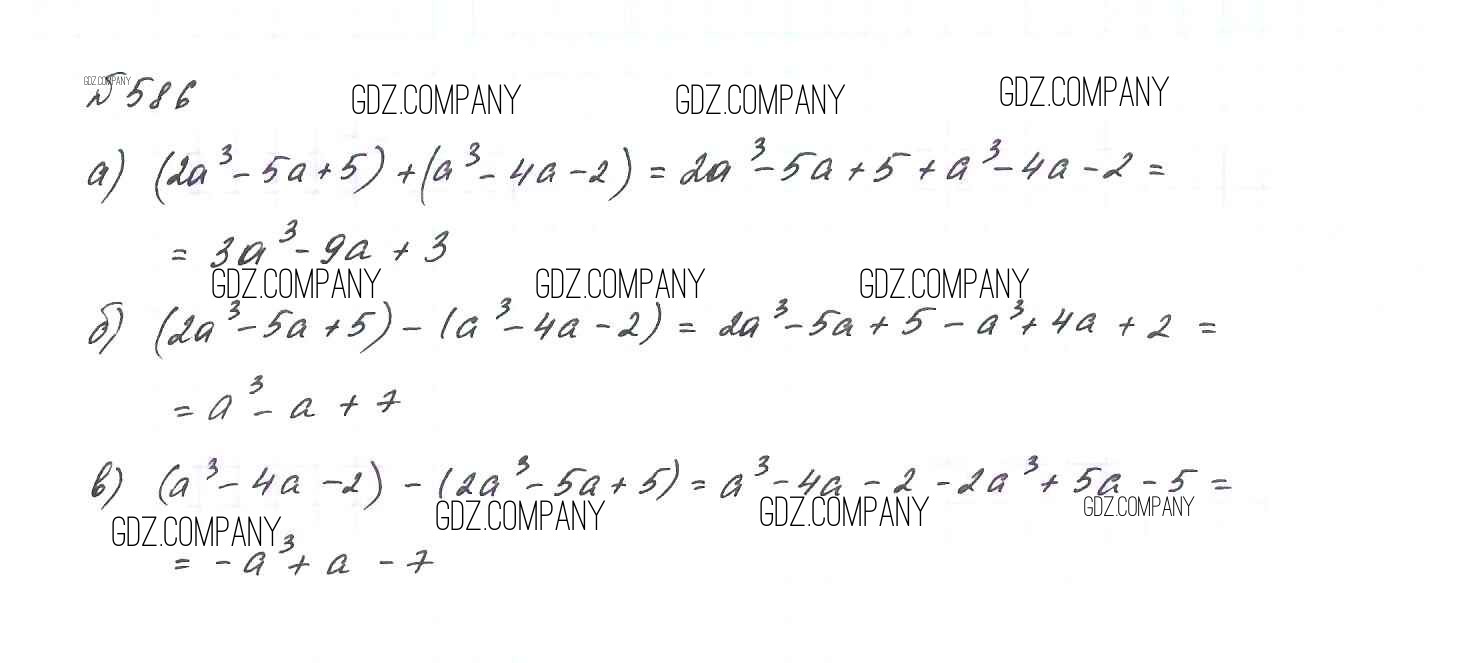 GDZ.COMPANY
№ 586 GDZ.COMPANY GDZ.COMPANY GDZ.COMPANY
а) (2a³ - 5a + 5) + (a³ - 4a - 2) = 2a³ - 5a + 5 + a³ - 4a - 2 =
= 3a³ - 9a + 3
GDZ.COMPANY GDZ.COMPANY GDZ.COMPANY
б) (2a³ - 5a + 5) - (a³ - 4a - 2) = 2a³ - 5a + 5 - a³ + 4a + 2 =
= a³ - a + 7
в) (a³ - 4a - 2) - (2a³ - 5a + 5) = a³ - 4a - 2 - 2a³ + 5a - 5 =
GDZ.COMPANY GDZ.COMPANY GDZ.COMPANY GDZ.COMPANY
= -a³ + a - 7